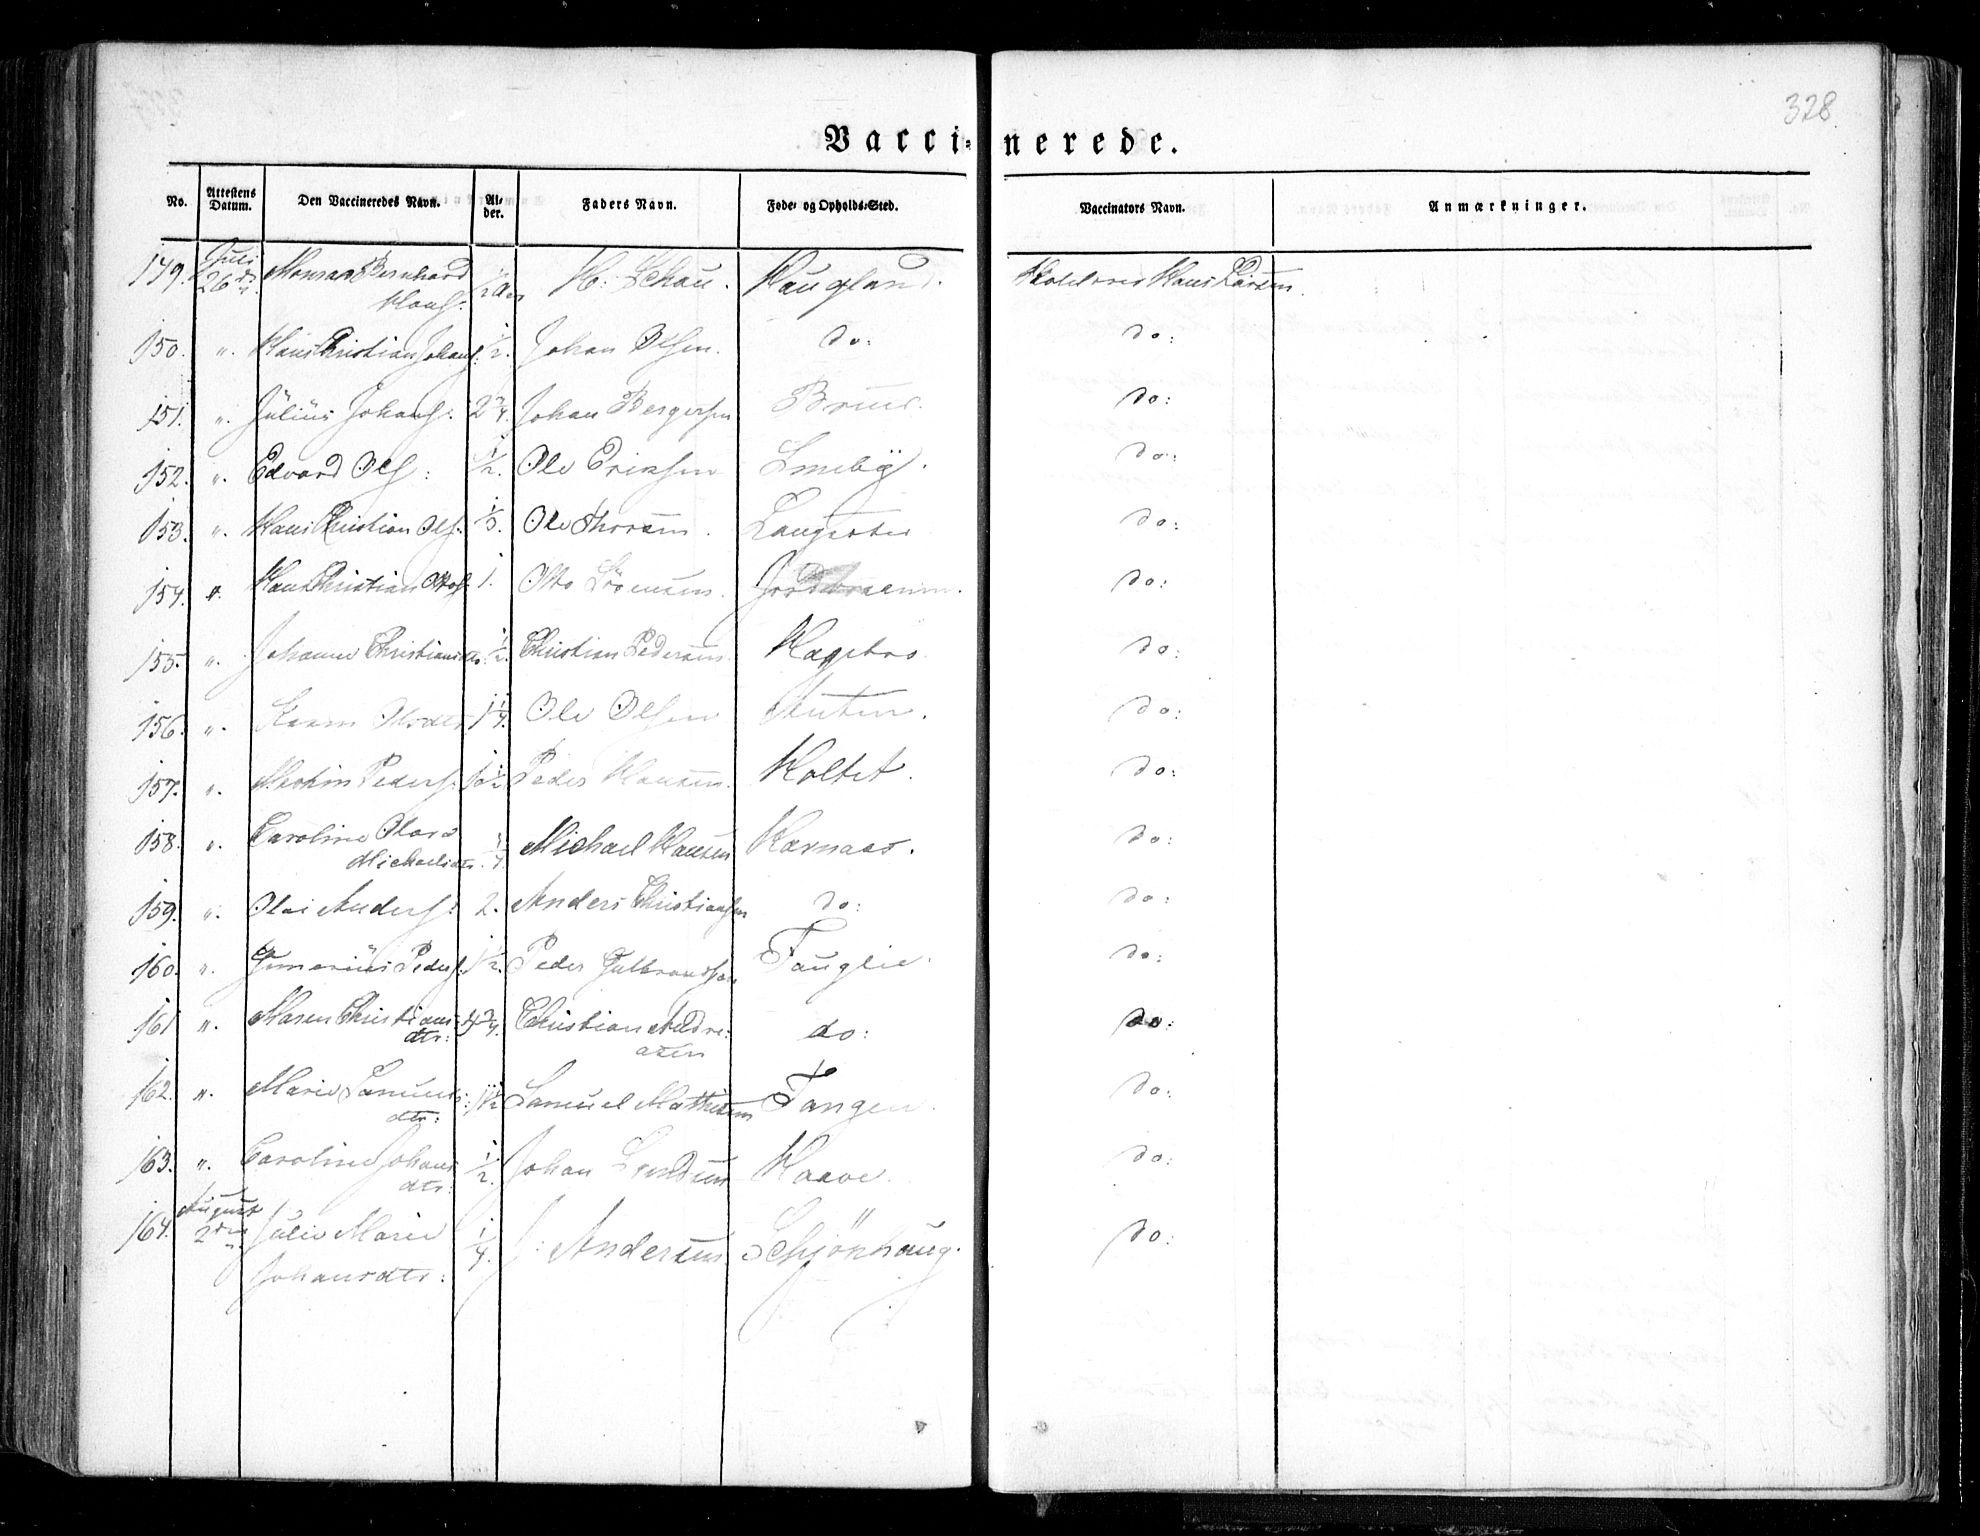 328
Vaccinerede.
No. Attestens Datum. Den Vaccineredes Navn. Alder. Faders Navn. Føde- og Opholds-Sted. Vaccinators Navn. Anmærkninger.
149. Juli 26de Bernhard Hansf: 1/2 H: Schau. Haugland. Hans Larsen.
150. ". Hans Christian Johansf: 1/2. Johan Olsen. do: do:
151. ". Julius Johansf: 2 3/4. Johan Bergersen do:
152. ". Edvard Olsf: 1/2. Ole Eriksen Smeby. do:
153. ". Hans Christian Olsf. Ole Thoresen. do:
154. ". Hans Christian 1. do:
155. ". Johanne Christiansdtr. 1/2. Christian Pedersen. Hagebro. do:
156. ". Karen Olsdtr 1 1/4. Ole Olsen do:
157. ". Pedersf. Peder Hansen. Holtet. do:
158. ". Caroline Michaelsdtr. 1/4. Michael Hansen do:
159. ". Andersf: 2. Anders Christiansen do: do:
160. ". Pedersf. 1 1/2. Peder Gulbrandsen Fauglie. do:
161 ". Maren Christiansdtr: 4 3/4. Christian Andreasen do: do:
162. ". Marie Samuelsdtr: 1 1/2 Samuel Mathesen Tangen. do:
163. ". Caroline Johansdtr: 1/2. Johan do:
164. August 2den Julie Marie Johansdtr: 1/4. J: Andersen Schjönhaug. do: